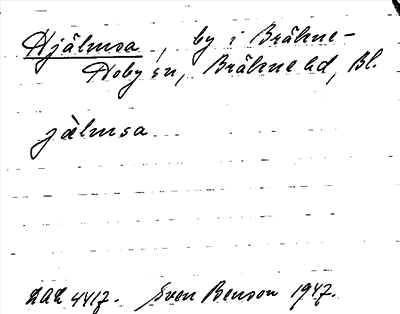 Hjälmsa, by i Bräkne-
Hoby sn, Bräkne hd, Bl.
jälmsa
Sven Benson 1947.